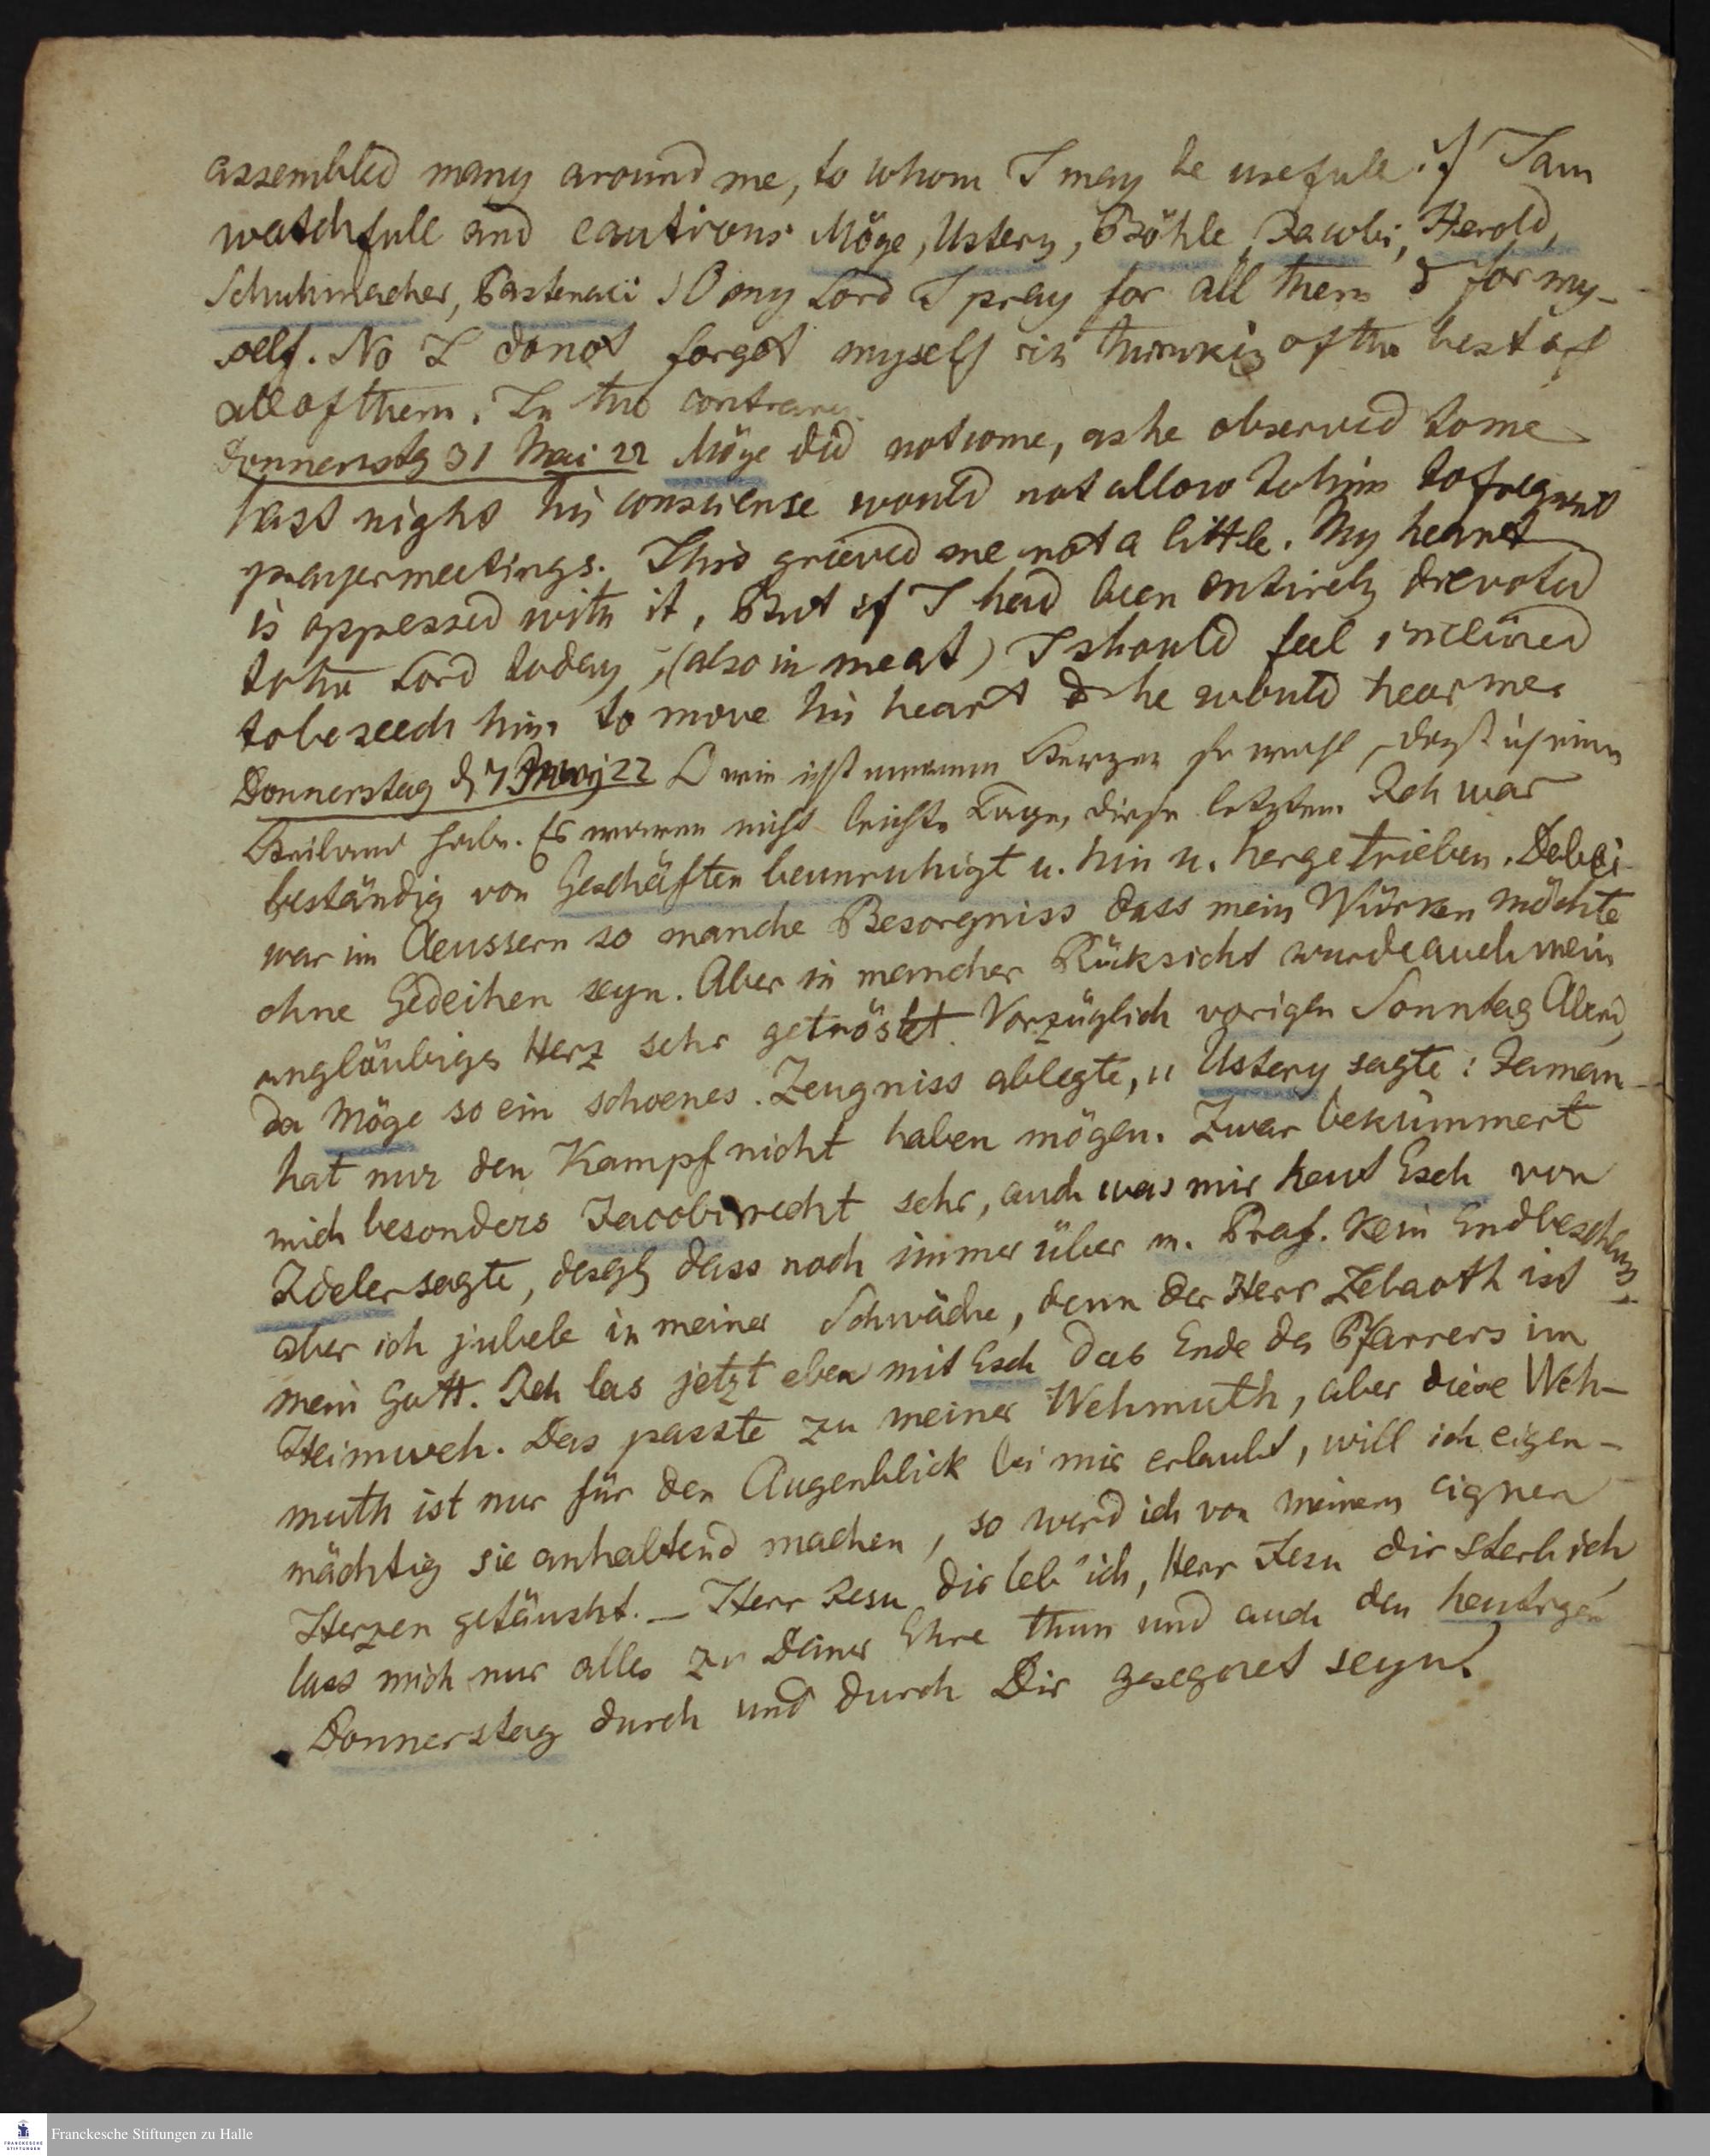 assembled many around me, to whom I may be usefull if I am
watchfull and cautious Möge, Ustery, Böhle, Jacobi, Herold,
Schuhmacher, Pastenaci! O my Lord I pray for all them & for my-
self. No I do not forget myself in thinking of the best of
all of them. In the contrary.
Donnerstg 31 Mai 22 Möge did not come, as he observed to me
last night his consciense would not allow to him to frequent
prayermeetings. This grieved me not a little. My heart
is oppressed with it, But if I had been entirely devoted
to the Lord today, (also in meat) I should feel inclined
to beseech him to move his heart & he would hear me.
Donnerstag d 7 Junij 22 O wie ist meinem Herzen so wohl, daß ich einen
Heiland habe. Es waren nicht leichte Tage, diese letzten. Ich war
beständig von Geschäften beunruhigt u. hin u. hergetrieben. Dabei
war im Aeussern so manche Besorgniss dass mein Würken möchte
ohne Gedeihen seyn. Aber in mancher Rüksicht wurde auch mein
ungläubiges Herz sehr getröstet. Vorzüglich vorigen Sonntag Abend,
da Möge so ein schoenes Zeugniss ablegte, u Ustery sagte: Jeman
hat nur den Kampf nicht haben mögen. Zwar bekümmert
mich besonders Jacobi recht sehr, auch was mir heut Esch von
Ideler sagte, desgl dass noch immer über m. Prof. kein Endbeschluss,
aber ich jubele in meiner Schwäche, denn der Herr Zebaoth ist
mein Gott. Ich las jetzt eben mit Esch das Ende des Pfarrers im
Heimweh. Das passte zu meiner Wehmuth, aber diese Weh-
muth ist nur für den Augenblick bei mir erlaubt, will ich eigen-
mächtig sie anhaltend machen, so werd ich von meinem eignen
Herzen getäuscht. _ Herr Jesu dir leb' ich, Herr Jesu dir sterb ich,
lass mich nur alles zu Deiner Ehre thun und auch den heutigen
Donnerstag durch und durch Dir gesegnet seyn!
Franckesche Stiftungen zu Halle